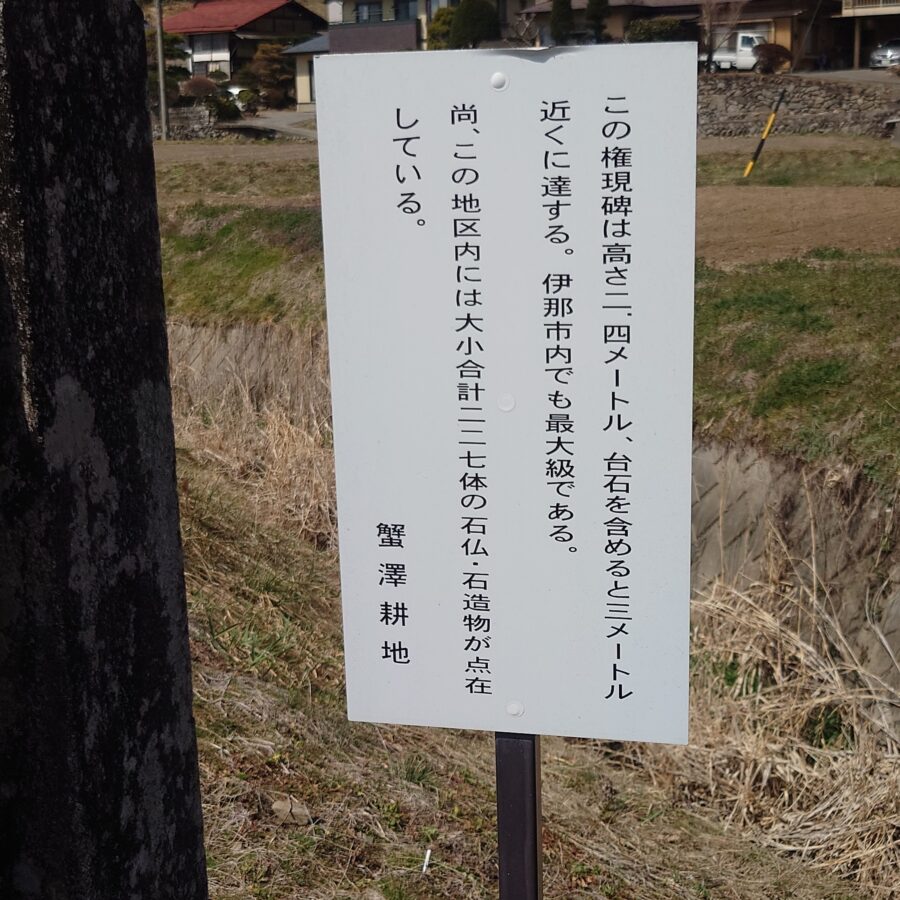 この権現碑は高さ二.四メートル、台石を含めると三メートル
近くに達する。伊那市内でも最大級である。
尚、この地区内には大小合計二二七体の石仏・石造物が点在
している。
蟹澤耕地